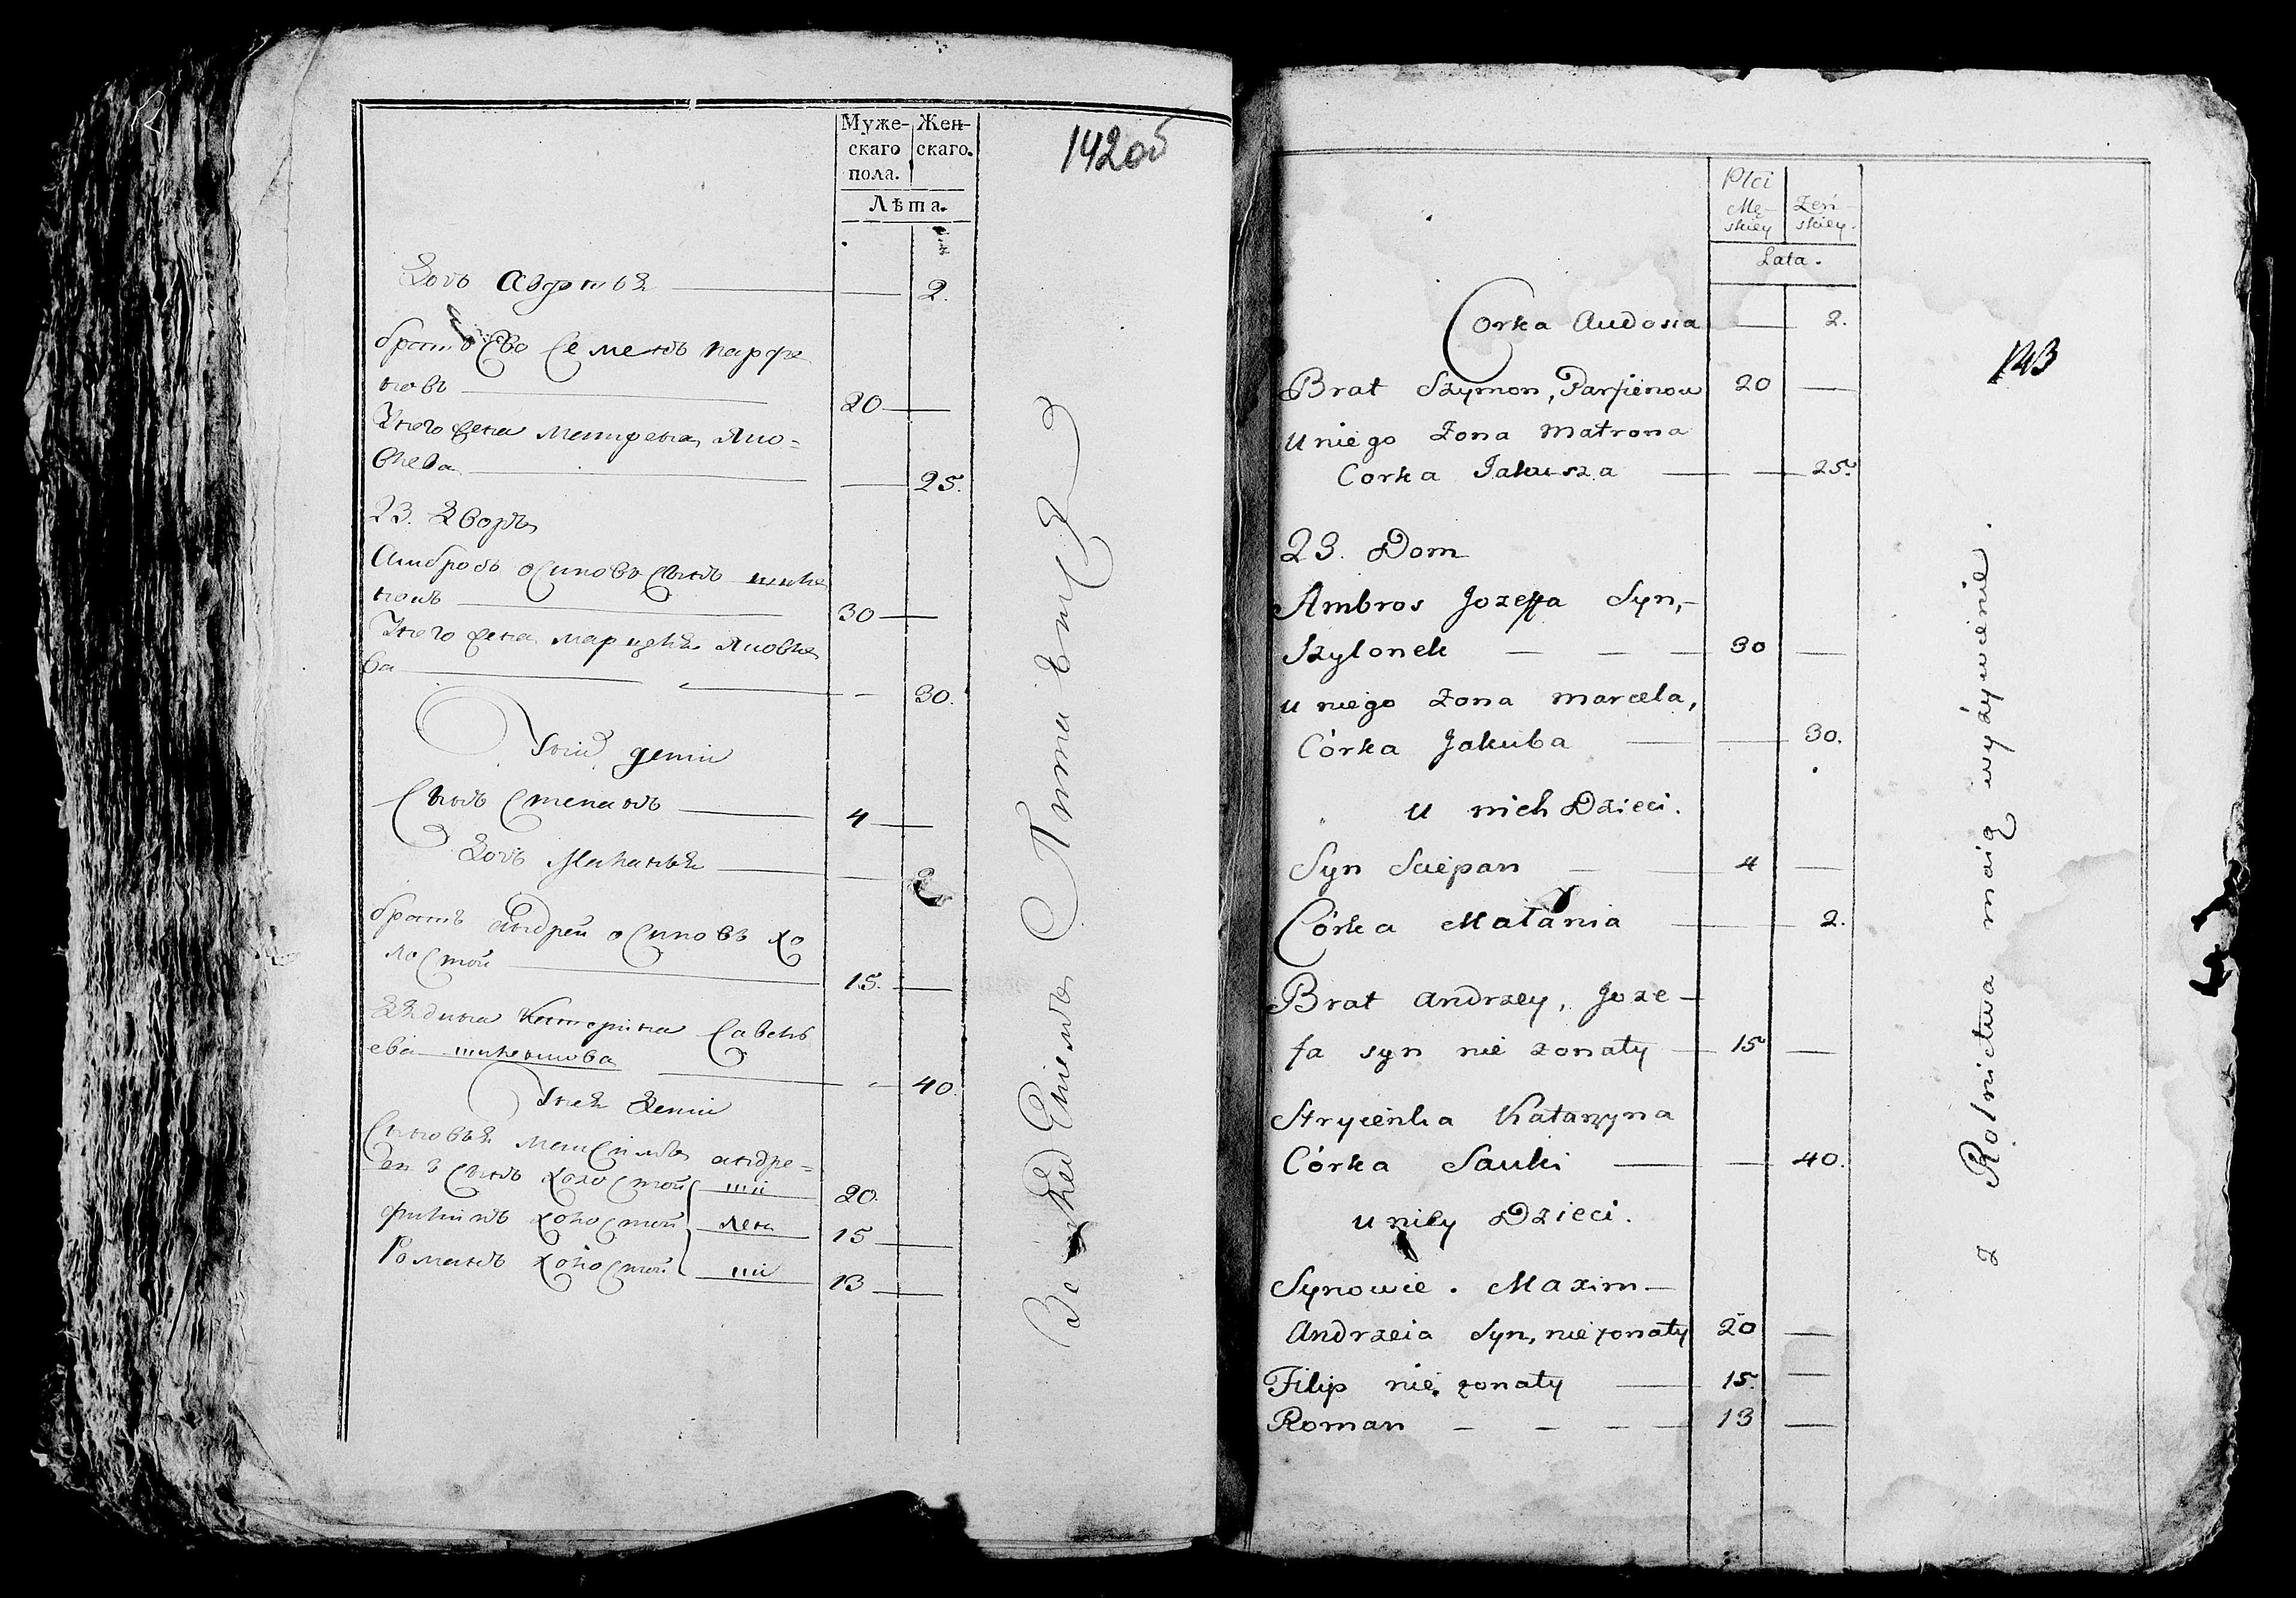 Муже-
скаго
пола.
Жен-
скаго.
Лѣта.
142об
Дочь Авдотья — — 2.
братъ Его Семенъ парфе
новъ — 20 —
У него жена матрена Яко-
влева — — 25.
23. Дворъ
Амбросъ осиповъ сынъ шиле
нокъ — 30 —
У него жена марцеля Яковле
ва — — 30.
У них дети
Сынъ Степанъ — 4 —
Дочь Маланья — — 2
братъ андрей осиповъ хо
лостой — 15. —
Дядина Катерина Савель
ева — — 40.
У нея Дети
Сыновья максимъ андре-
ев сынъ холостой 20.
филипъ холостой 15 —
Романъ холостой 13 —
Plci
Mę-
skiey
żeń-
skiey.
Lata.
143
Corka Audosia — 2.
Brat Szymon, Parfienow 20 —
u niego żona Matrona
Corka Jakusza — — 25.
23. Dom
Ambros Jozeffa Syn,-
Szylonek — — — 30 —
u niego żona Marcela,
Córka Jakuba — — 30.
u nich Dzieci.
Syn Sciepan — — 4 —
Córka Matania — — 2.
Brat Andrzey, Joze-
fa syn nie żonaty — 15 —
Stryienka Katarzyna
Córka Sauki — — 40.
u niey Dzieci.
Synowie. Maxim —
Andrzeia Syn, nie żonaty 20 —
Filip nie żonaty — 15. —
Roman — — — — 13 —
z Rolnictwa maią wyżywienie.